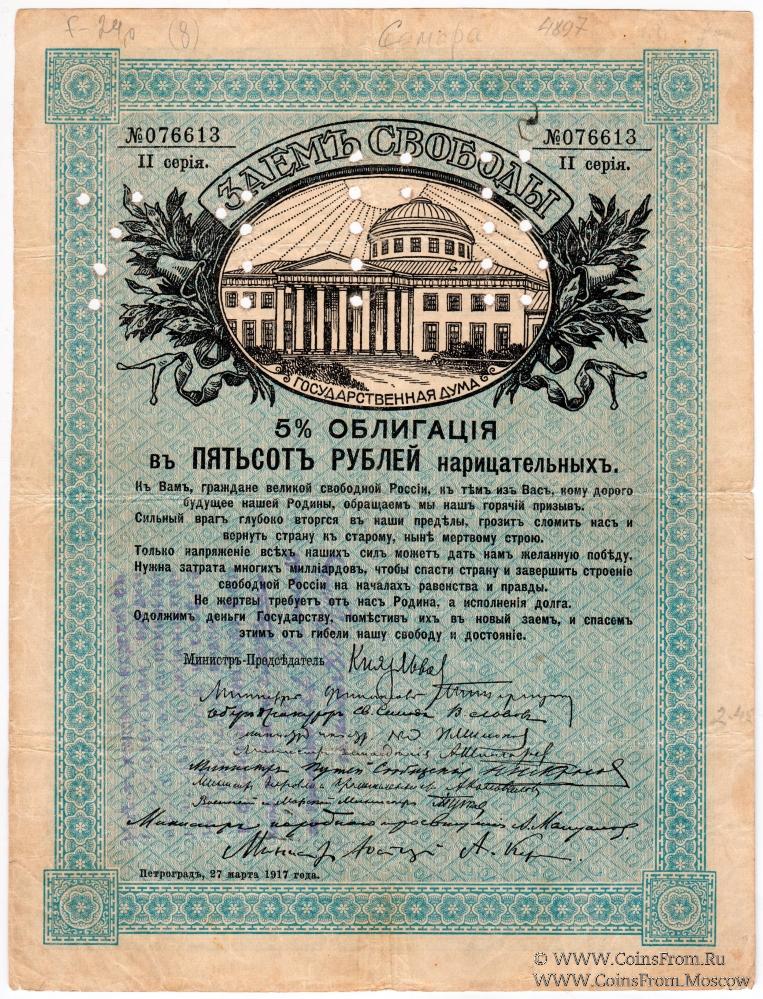 4897
№076613
II серія.
№076613
II серія.
ЗАЕМЪ СВОБОДЫ
ГОСУДАРСТВЕННАЯ ДУМА
5% ОБЛИГАЦІЯ
въ ПЯТЬСОТЪ РУБЛЕЙ нарицательныхъ.
Къ Вамъ, граждане великой свободной Россіи, къ тѣмъ изъ Васъ, кому дорого
будущее нашей Родины, обращаемъ мы нашъ горячій призывъ.
Сильный врагъ глубоко вторгся въ наши предѣлы, грозитъ сломить насъ и
вернуть страну къ старому, нынѣ мертвому строю.
Только напряженіе всѣхъ нашихъ силъ можетъ дать намъ желанную побѣду.
Нужна затрата многихъ милліардовъ, чтобы спасти страну и завершить строеніе
свободной Россіи на началахъ равенства и правды.
Не жертвы требуетъ отъ насъ Родина, а исполненія долга.
Одолжимъ деньги Государству, помѣстивъ ихъ въ новый заемъ, и спасемъ
этимъ отъ гибели нашу свободу и достояніе.
Министръ-Предсѣдатель Князь Львов
Министръ Финансовъ
Министръ Путей Сообщения
Военный и Морской Министръ
Министръ Народного просвѣщенія А. Мануйлов
Министръ Юстиціи А. Кер
Петроградъ, 27 марта 1917 года.
© WWW.CoinsFrom.Ru
WWW.CoinsFrom.Moscow